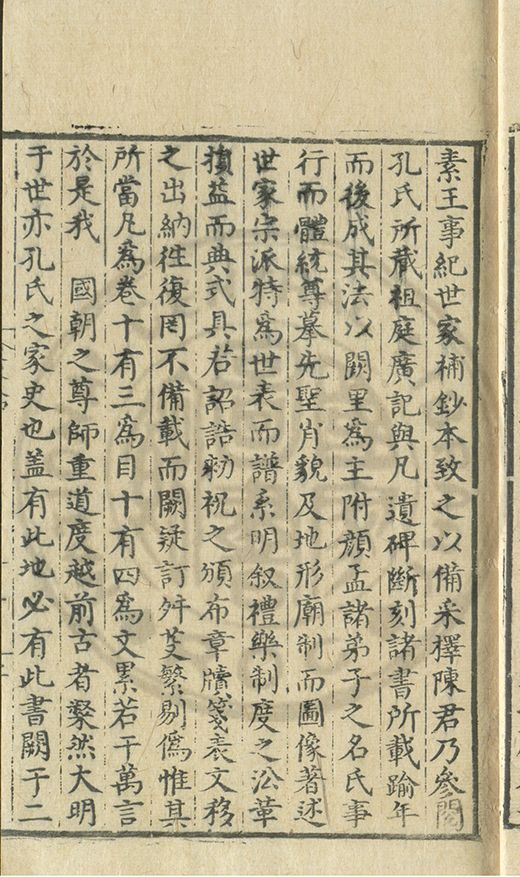 素王事紀世家補鈔本致之以備采擇陳君乃參閱
孔氏所藏祖庭廣記與凡遺碑斷刻諸書所載踰年
而後成其法以闕里爲主附顔孟諸弟子之名氏事
行而體統尊摹先聖肖貌及地形廟制而圖像著述
世家宗派特爲世表而譜系明叙禮樂制度之沿革
損益而典式具若詔誥勑祝之頒布章牘箋表文移
之出納徃復罔不備載而闕疑訂舛芟繁剔僞惟其
所當凡爲卷十有三爲目十有四爲文累若干萬言
於是我　國朝之尊師重道度越前古者粲然大明
于世亦孔氏之家史也盖有此地必有此書闕于二